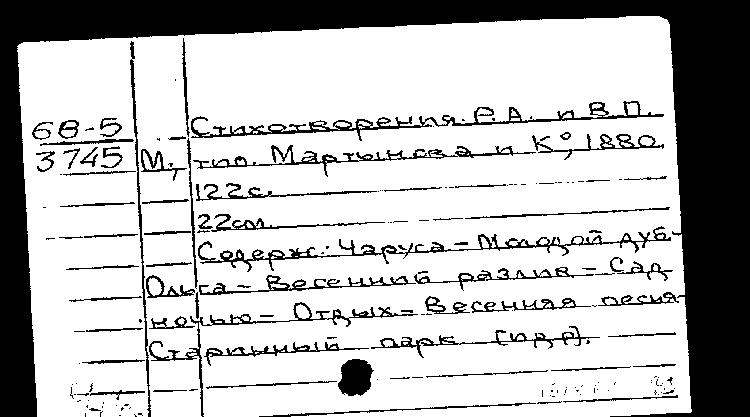 68-5 Стихотворения Р.А. и В.П.
3745 М., тип. Мартынова и К°, 1880.
122 с.
22 см.
Содерж.: Чаруса – Молодой дуб –
Ольга – Весенний разлив – Сад
ночью – Отдых – Весенняя песня –
Старинный парк [и др].